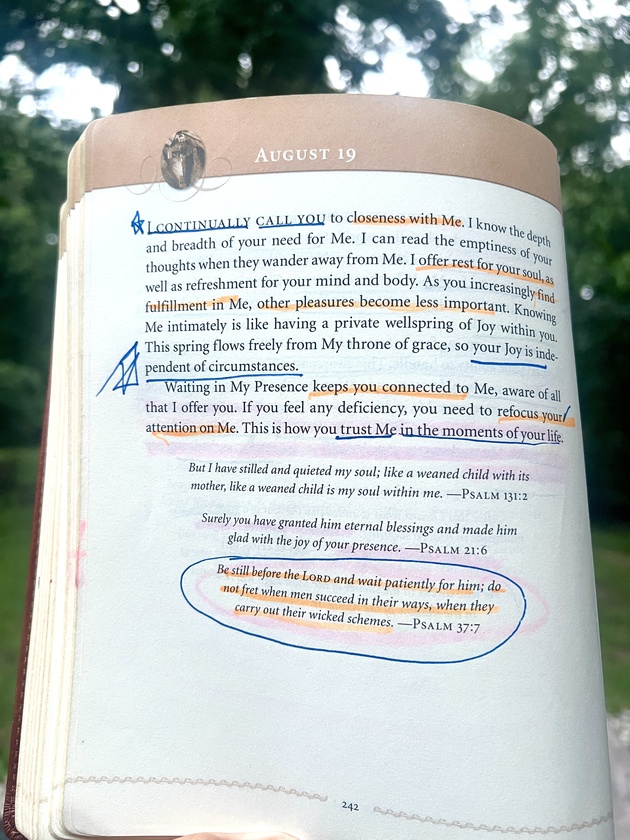 AUGUST 19
I CONTINUALLY CALL YOU to closeness with Me. I know the depth
and breadth of your need for Me. I can read the emptiness of your
thoughts when they wander away from Me. I offer rest for your soul, as
well as refreshment for your mind and body. As you increasingly find
fulfillment in Me, other pleasures become less important. Knowing
Me intimately is like having a private wellspring of Joy within you.
This spring flows freely from My throne of grace, so your Joy is inde-
pendent of circumstances.
Waiting in My Presence keeps you connected to Me, aware of all
that I offer you. If you feel any deficiency, you need to refocus your
attention on Me. This is how you trust Me in the moments of your life.
But I have stilled and quieted my soul; like a weaned child with its
mother, like a weaned child is my soul within me. —PSALM 131:2
Surely you have granted him eternal blessings and made him
glad with the joy of your presence. —PSALM 21:6
Be still before the LORD and wait patiently for him; do
not fret when men succeed in their ways, when they
carry out their wicked schemes. —PSALM 37:7
242